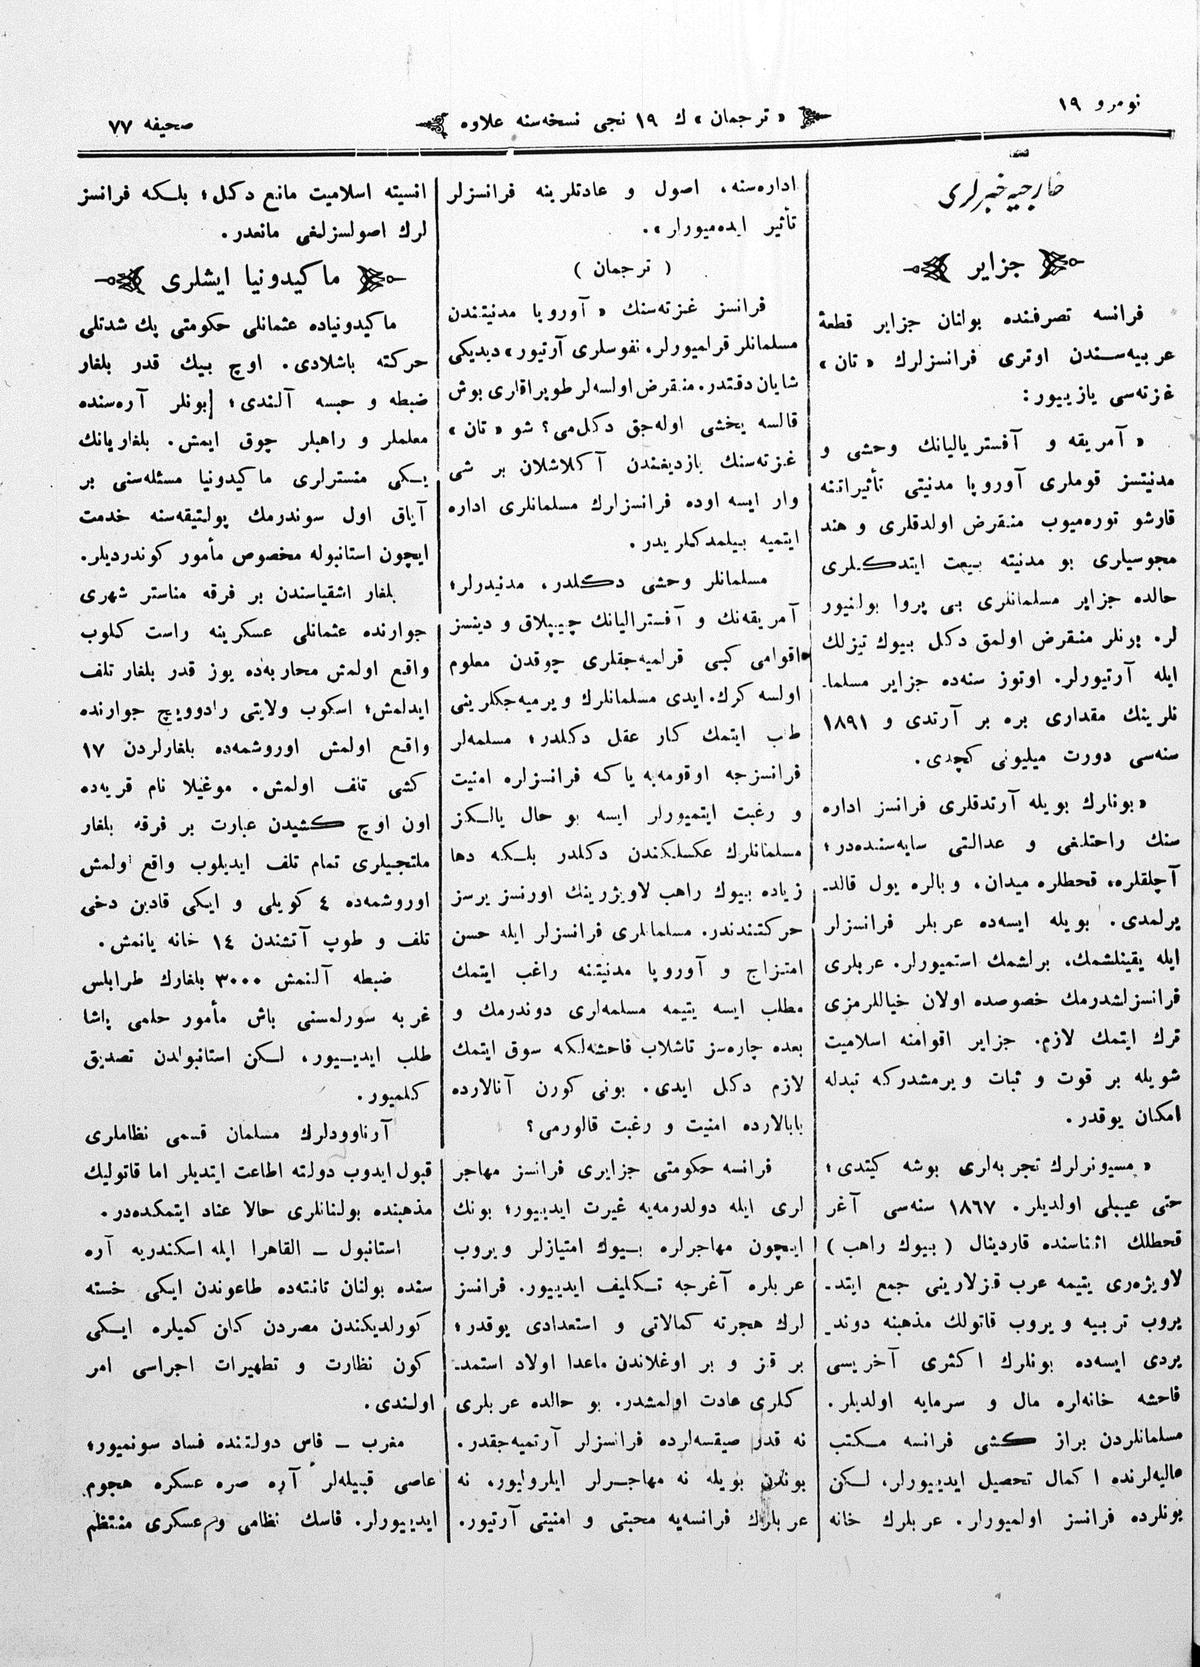 نومرو ١٩
« ترجمان » ك ١٩ نجى نسخه‌سنه علاوه
صحيفه ٧٧
خارجيه خبرلرى
جزاير
فرانسه تصرفنده بولنان جزاير قطعهٔ
عربيه‌سندن اوترى فرانسزلرك « تان »
غزته‌سى يازييور :
« آمريقه و آفسترياليانك وحشى و
مدنيتسز قوملرى آوروپا مدنيتى تأثيراتنه
قارشو توره‌ميوب منقرض اولدقلرى و هند
مجوسيلرى بو مدنيته بيعت ايتدكلرى
حالده جزاير مسلمانلرى بى پروا بولنيور
لر. بونلر منقرض اولمق دكل بيوك تيزلك
ايله آرتيورلر. اوتوز سنه‌ده جزاير مسلما۔
نلرينك مقدارى بره بر آرتدى و ١٨٩١
سنه‌سى دورت ميليونى كچدى.
« بونلرك بويله آرتدقلرى فرانسز اداره
سنك راحتلغى و عدالتى سايه‌سنده‌در؛
آچلقلره، قحطلره ميدان، وبالره يول قالد۔
يرلمدى. بويله ايسه‌ده عربلر فرانسزلر
ايله يقينلشمك، برلشمك استميورلر. عربلرى
فرانسزلشدرمك خصوصده اولان خياللرمزى
ترك ايتمك لازم. جزاير اقوامنه اسلاميت
شويله بر قوت و ثبات ويرمشدركه تبدله
امكان يوقدر.
« مسيونرلرك تجربه‌لرى بوشه كيتدى؛
حتى عيبلى اولديلر. ١٨٦٧ سنه‌سى آغر
قحطلك اثناسنده قاردينال ( بيوك راهب )
لاويژه‌رى يتيمه عرب قزلارينى جمع ايتد۔
يروب تربيه ويروب قاتولك مذهبنه دوند۔
يردى ايسه‌ده بونلرك اكثرى آخريسى
فاحشه خانه‌لره مال و سرمايه اولديلر.
مسلمانلردن براز كشى فرانسه مكتب
عاليه‌لرنده اكمال تحصيل ايدييورلر، لكن
بونلرده فرانسز اولميورلر. عربلرك خانه
اداره‌سنه، اصول و عادتلرينه فرانسزلر
تأثير ايده‌ميورلر».
( ترجمان )
فرانسز غزته‌سنك « آوروپا مدنيتندن
مسلمانلر قرلميورلر، نفوسلرى آرتيور » ديديكى
شايان دقتدر. منقرض اولسه‌لر طوپراقلرى بوش
قالسه يخشى اوله‌جق دكل‌مى؟ شو « تان »
غزته‌سنك يازديغندن آكلاشلان بر شى
وار ايسه اوده فرانسزلرك مسلمانلرى اداره
ايتميه بيلمدكلريدر.
مسلمانلر وحشى دكلدر، مدنيدرلر؛
آمريقه‌نك و آفستراليانك چيپلاق و دينسز
اقوامى كبى قرلميه‌جقلرى چوقدن معلوم
اولسه كرك. ايدى مسلمانلرك ويرميه‌جكلرينى
طلب ايتمك كار عقل دكلدر؛ مسلمه‌لر
فرانسزجه اوقومه‌يه ياكه فرانسزلره امنيت
و رغبت ايتميورلر ايسه بو حال يالكز
مسلمانلرك عكسلكندن دكلدر بلكه دها
زياده بيوك راهب لاويژرينك اورنسز يرسز
حركتندندر. مسلمانلرى فرانسزلر ايله حسن
امتزاج و آوروپا مدنيتنه راغب ايتمك
مطلب ايسه يتيمه مسلمه‌لرى دوندرمك و
بعده چاره‌سز تاشلاب فاحشه‌لكه سوق ايتمك
لازم دكل ايدى. بونى كورن آنالارده
بابالارده امنيت و رغبت قالورمى؟
فرانسه حكومتى جزايرى فرانسز مهاجر
لرى ايله دولدرمه‌يه غيرت ايدييور؛ بونك
ايچون مهاجرلره بيوك امتيازلر ويروب
عربلره آغرجه تكليف ايدييور. فرانسز
لرك هجرته كمالاتى و استعدادى يوقدر؛
بر قز و بر اوغلاندن ماعدا اولاد استمد۔
كلرى عادت اولمشدر. بو حالده عربلرى
نه قدر صيقسه‌لرده فرانسزلر آرتميه‌جقدر.
بوندن بويله نه مهاجرلر ايلروليور، نه
عربلرك فرانسه‌يه محبتى و امنيتى آرتيور.
انسيته اسلاميت مانع دكل؛ بلكه فرانسز
لرك اصولسزلغى مانعدر.
ماكيدونيا ايشلرى
ماكيدونياده عثمانلى حكومتى پك شدتلى
حركته باشلادى. اوچ بيك قدر بلغار
ضبطه و حبسه آلندى؛ بونلر آره‌سنده
معلملر و راهبلر چوق ايمش. بلغاريانك
يكى منسترلرى ماكيدونيا مسئله‌سنى بر
آياق اول سوندرمك پولتيقه‌سنه خدمت
ايچون استانبوله مخصوص مأمور كوندرديلر.
بلغار اشقياسندن بر فرقه مناستر شهرى
جوارنده عثمانلى عسكرينه راست كلوب
واقع اولمش محاربه‌ده يوز قدر بلغار تلف
ايدلمش؛ اسكوب ولايتى رادوويچ جوارنده
واقع اولمش اوروشمه‌ده بلغارلردن ١٧
كشى تلف اولمش. موغيلا نام قريه‌ده
اون اوچ كشيدن عبارت بر فرقه بلغار
ملتجيلرى تمام تلف ايديلوب واقع اولمش
اوروشمه‌ده ٤ كويلى و ايكى قادين دخى
تلف و طوپ آتشندن ١٤ خانه يانمش.
ضبطه آلنمش ٣٠٠٠ بلغارك طرابلس
غربه سورلمسنى باش مأمور حلمى پاشا
طلب ايدييور، لكن استانبولدن تصديق
كلميور.
آرناوودلرك مسلمان قسمى نظاملرى
قبول ايدوب دولته اطاعت ايتديلر اما قاتوليك
مذهبنده بولنانلرى حالا عناد ايتمكده‌در.
استانبول ــ القاهرا ايله اسكندريه آره
سنده بولنان تانته‌ده طاعوندن ايكى خسته
كورلديكندن مصردن كلن كميلره ايكى
كون نظارت و تطهيرات اجراسى امر
اولندى.
مغرب ــ فاس دولتنده فساد سونميور؛
عاصى قبيله‌لر آره صره عسكره هجوم
ايدييورلر. فاسك نظامى و عسكرى منتظم